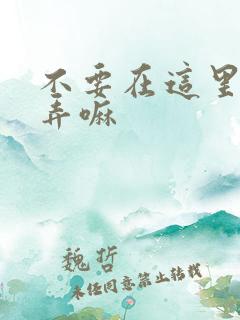 不要在這里
弄嘛
魏哲
未经同意禁止转载